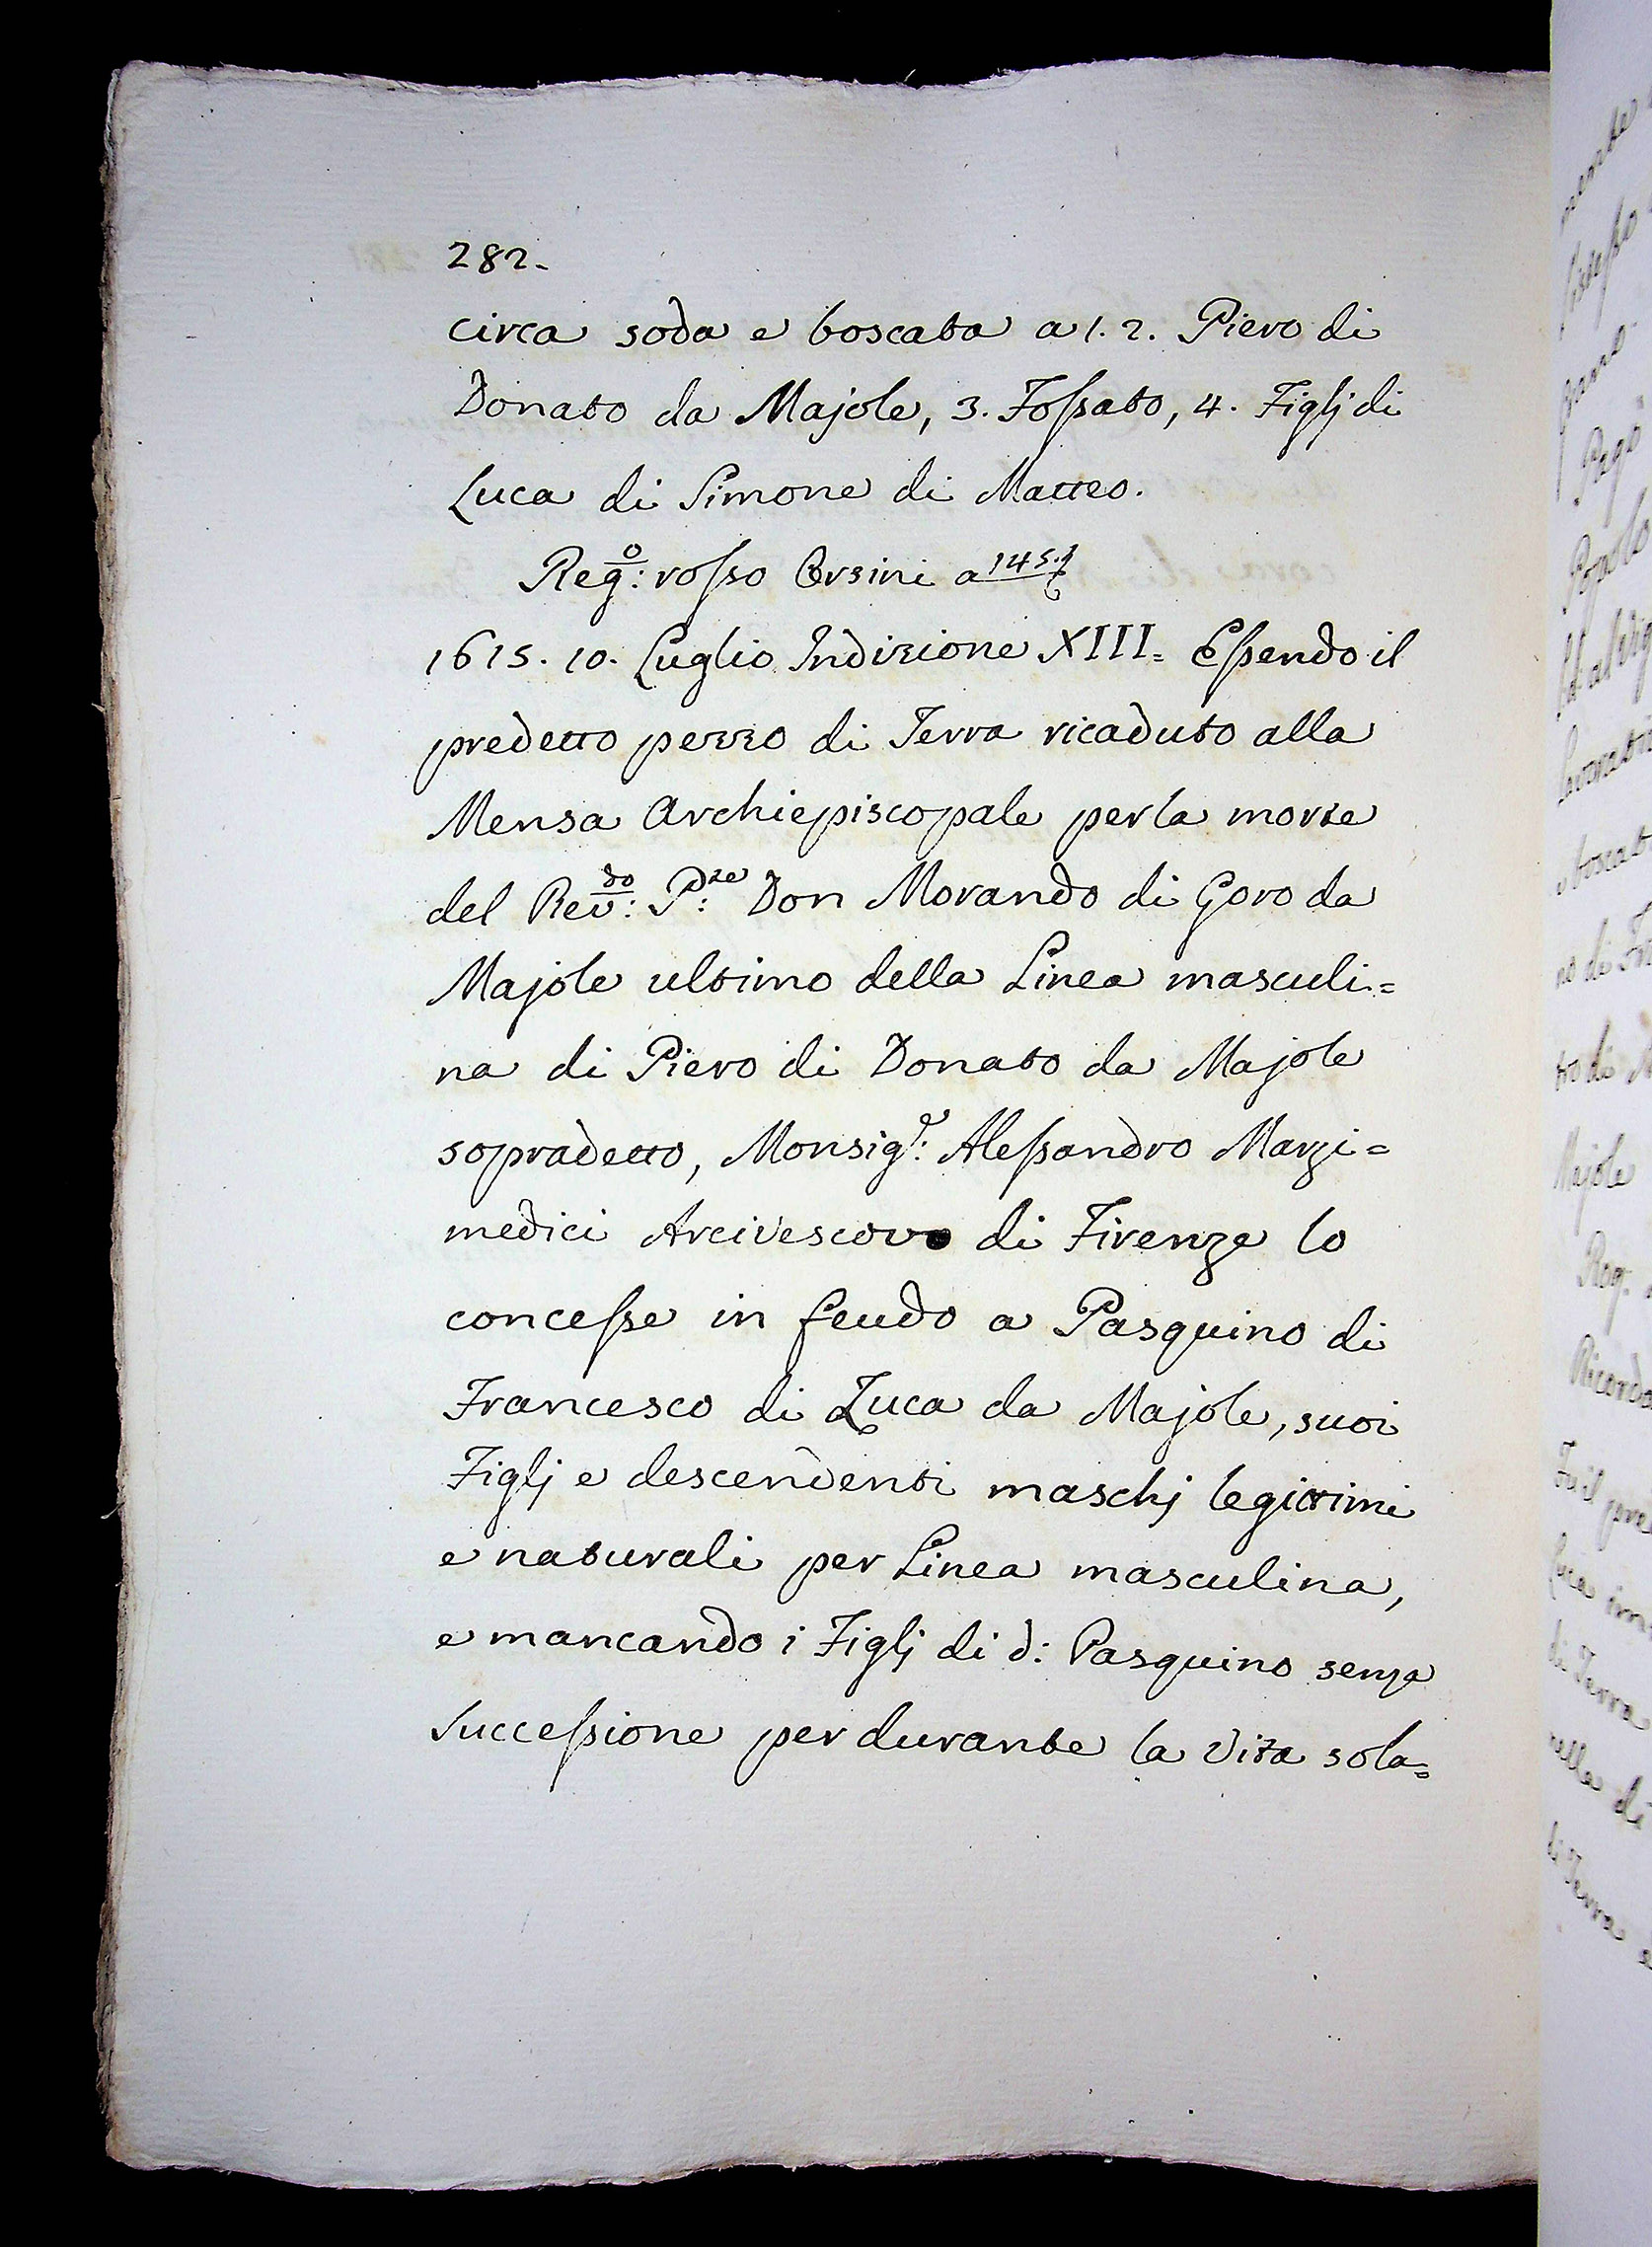 282.
circa soda e boscata a 1. 2. Piero di
Donato da Majole, 3. Fossato, 4. Figlj di
Luca di Simone di Matteo.
Reg:º rosso Orsini a 145.
1615. 10. Luglio Indizione XIII= Essendo il
predetto pezzo di Terra ricaduto alla
Mensa Archiepiscopale per la morte
del Rev:do P:re Don Morando di Goro da
Majole ultimo della Linea masculi=
na di Piero di Donato da Majole
sopradetto, Monsig:re Alessandro Marzi=
medici Arcivescovo di Firenze lo
concesse in feudo a Pasquino di
Francesco di Luca da Majole, suoi
Figlj e descendenti maschj legittimi
e naturali per Linea masculina,
e mancando i Figlj di d: Pasquino senza
Successione per durante la Vita sola=